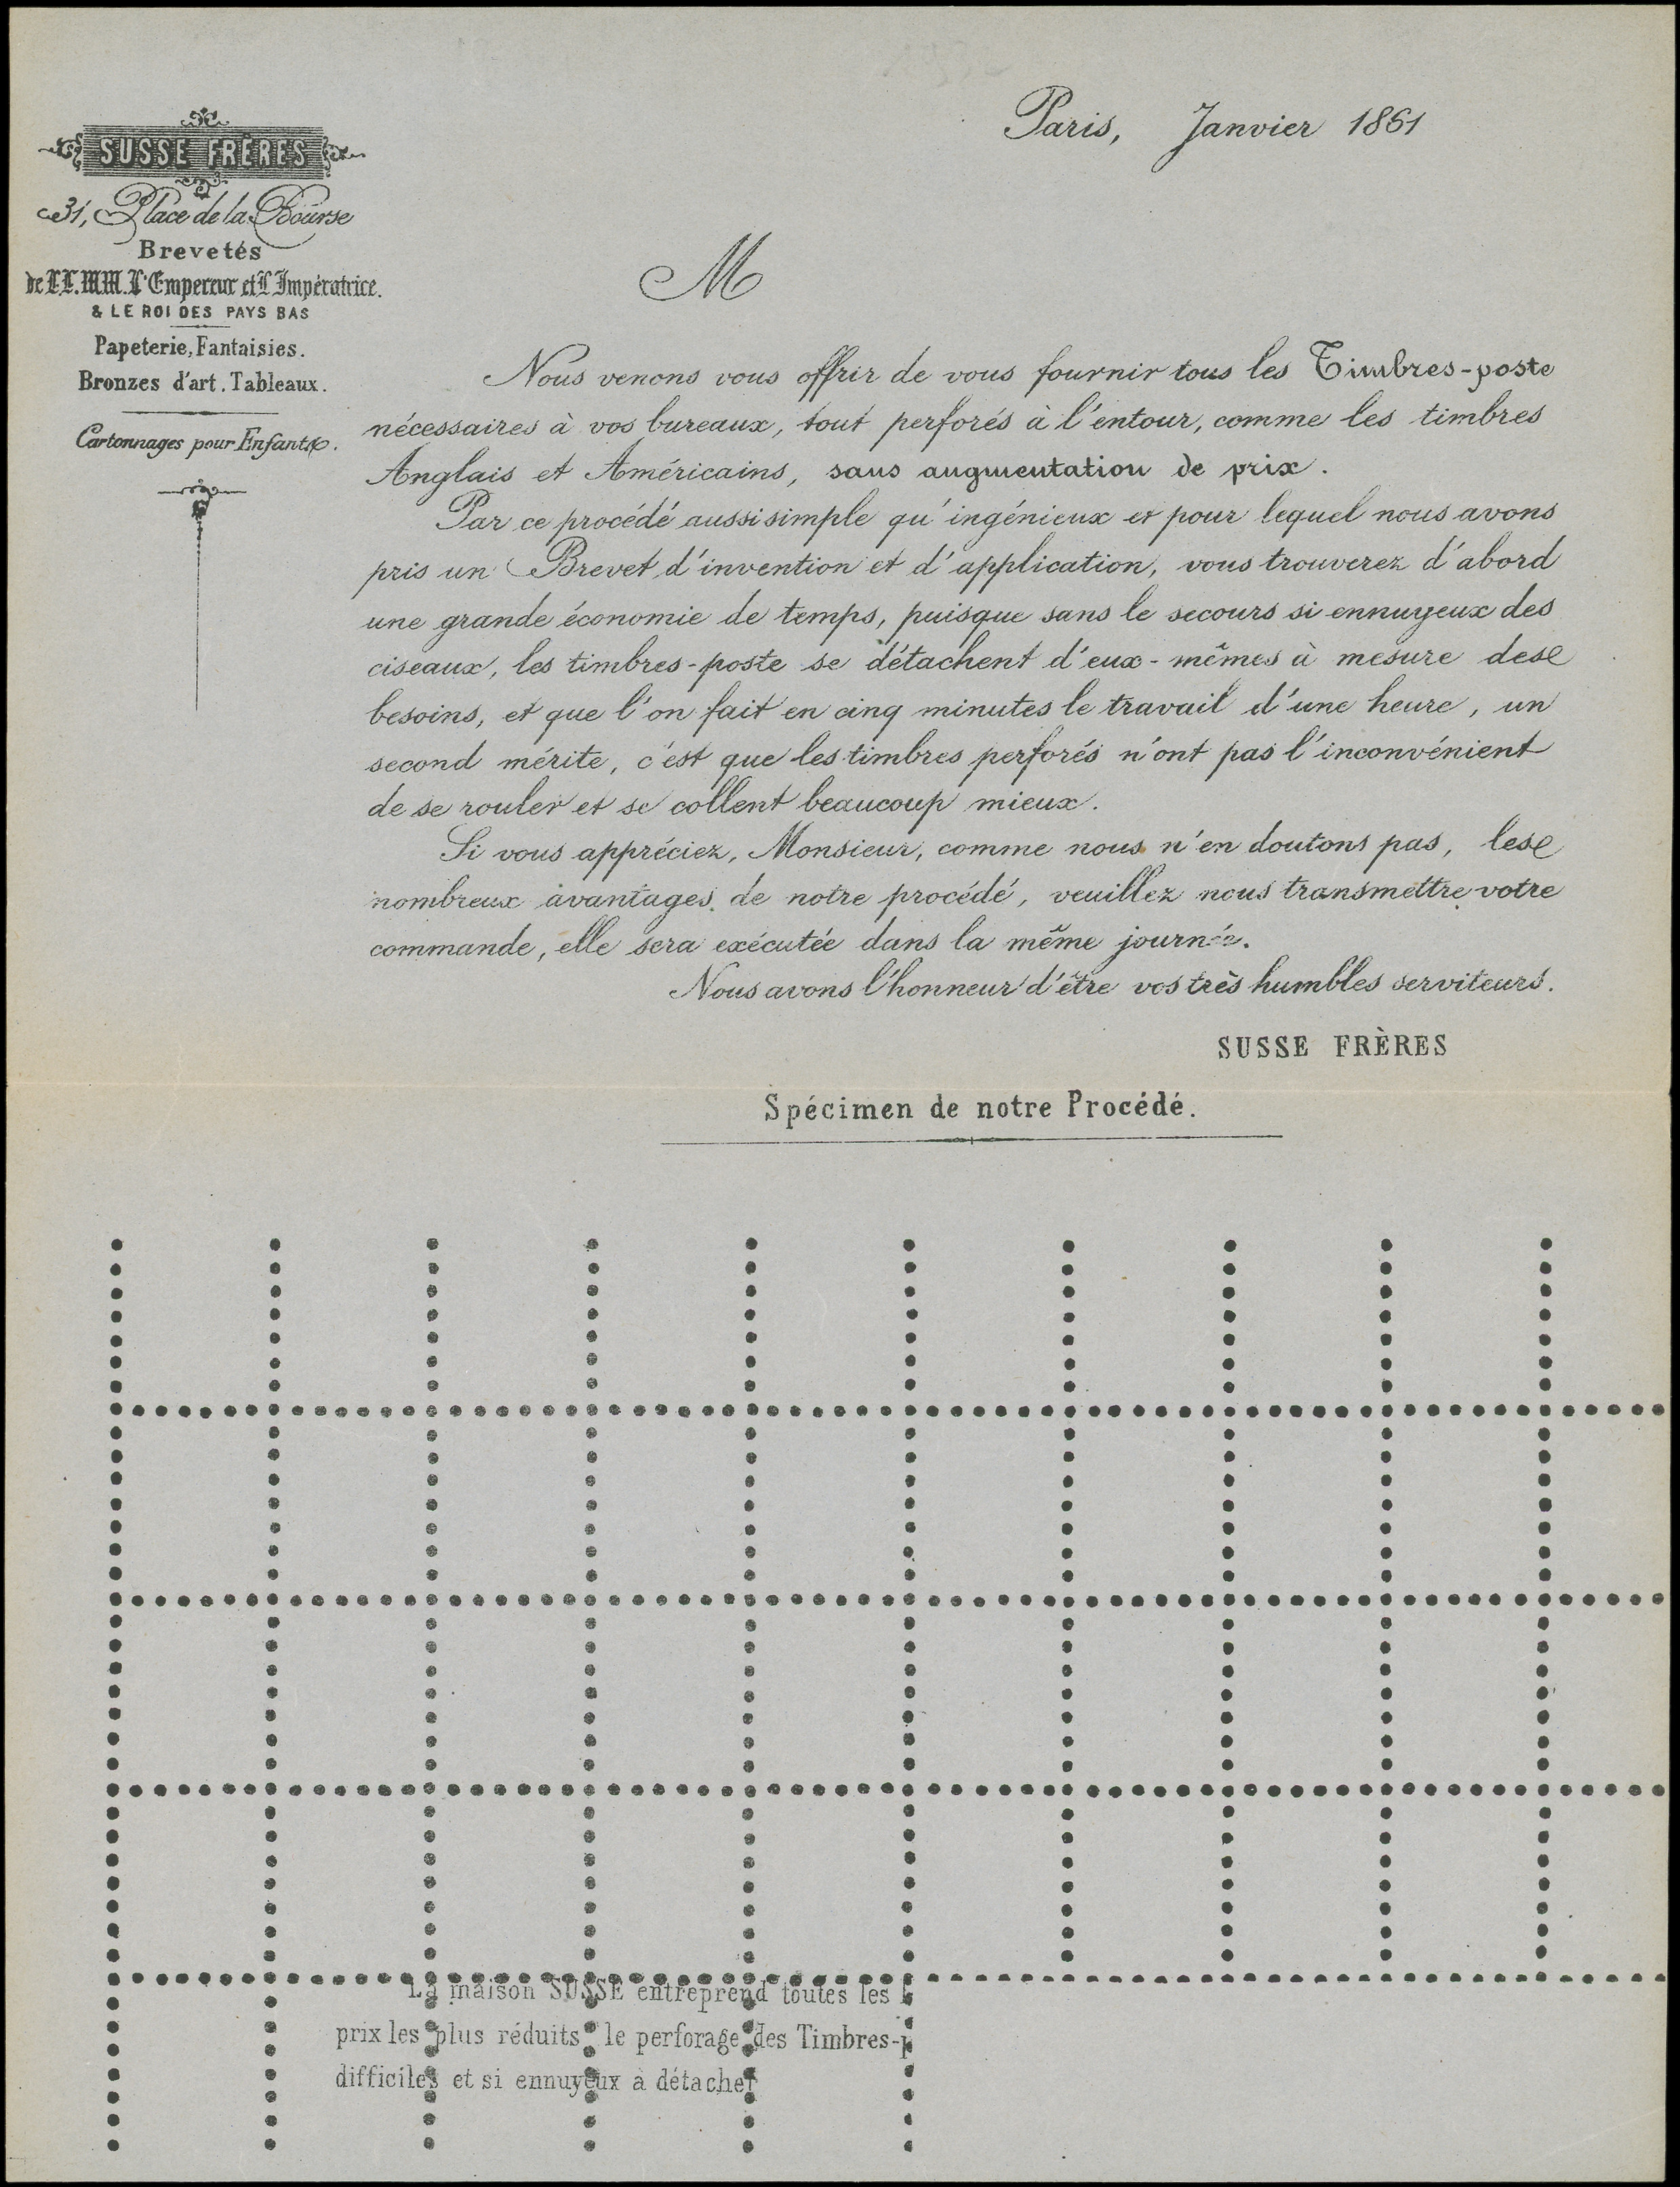 Paris, Janvier 1861
SUSSE FRÈRES
31, Place de la Bourse
Brevetés
de LL.MM. L'Empereur et L'Impératrice.
& LE ROI DES PAYS BAS
Papeterie, Fantaisies.
Bronzes d'art. Tableaux.
Cartonnages pour Enfants.
M
Nous venons vous offrir de vous fournir tous les Timbres-poste
nécessaires à vos bureaux, tout perforés à l'entour, comme les timbres
Anglais et Américains, sans augmentation de prix.
Par ce procédé aussi simple qu'ingénieux et pour lequel nous avons
pris un Brevet d'invention et d'application, vous trouverez d'abord
une grande économie de temps, puisque sans le secours si ennuyeux des
ciseaux, les timbres-poste se détachent d'eux-mêmes à mesure des
besoins, et que l'on fait en cinq minutes le travail d'une heure, un
second mérite, c'est que les timbres perforés n'ont pas l'inconvénient
de se rouler et se collent beaucoup mieux.
Si vous appréciez, Monsieur, comme nous n'en doutons pas, les
nombreux avantages de notre procédé, veuillez nous transmettre votre
commande, elle sera exécutée dans la même journée.
Nous avons l'honneur d'être vos très humbles serviteurs.
SUSSE FRÈRES
Spécimen de notre Procédé.
La maison SUSSE entreprend toutes les
prix les plus réduits le perforage des Timbres-p
difficiles et si ennuyeux à détacher